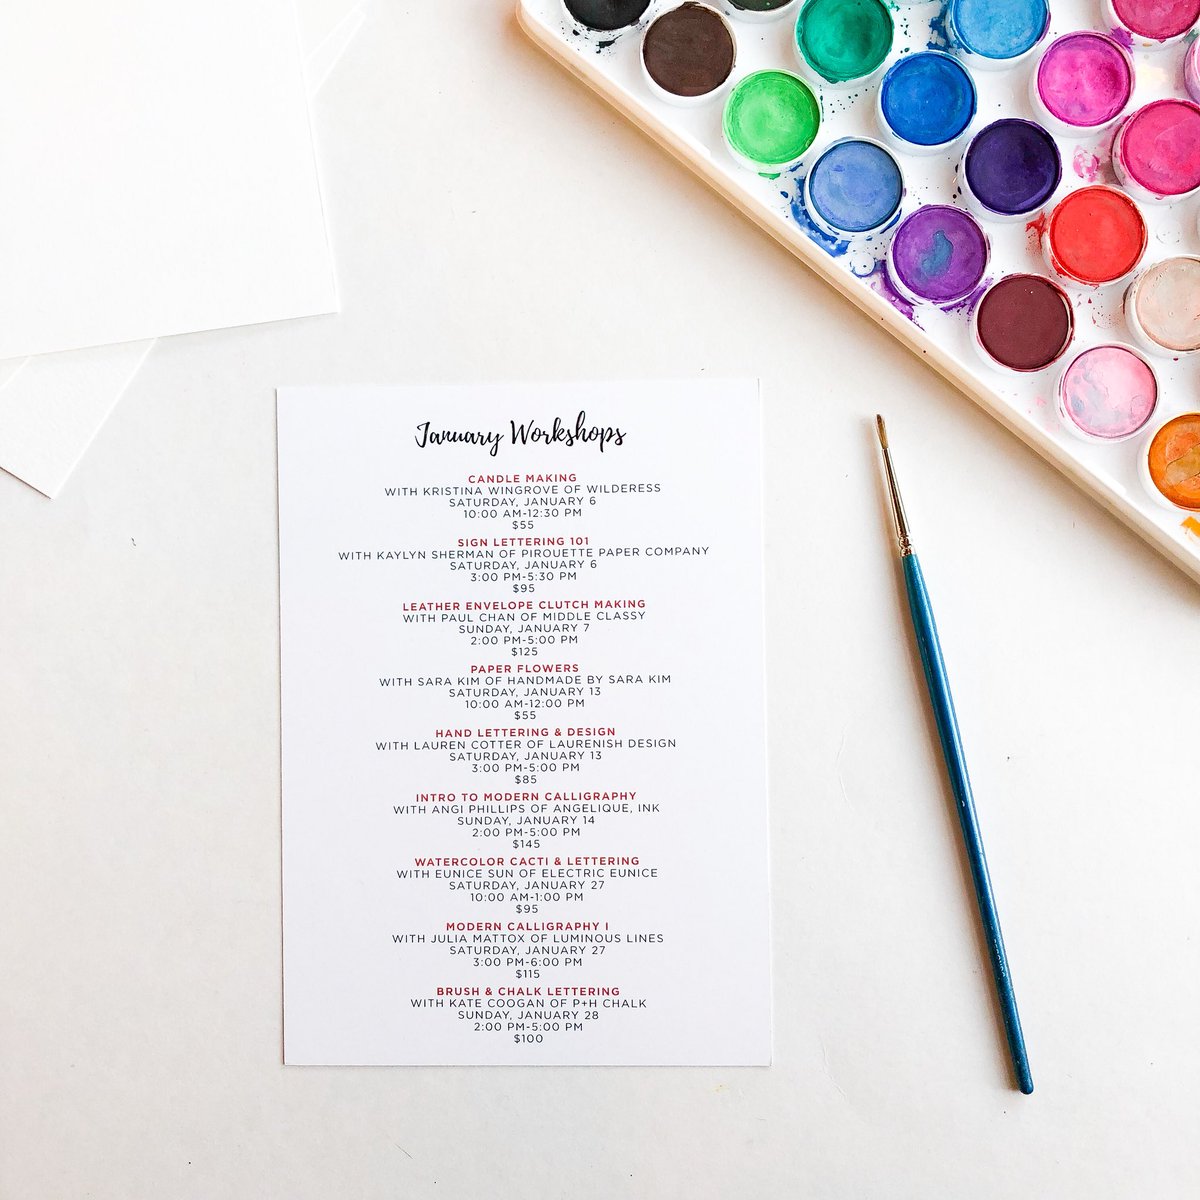 January Workshops
CANDLE MAKING
WITH KRISTINA WINGROVE OF WILDERESS
SATURDAY, JANUARY 6
10:00 AM-12:30 PM
$55
SIGN LETTERING 101
WITH KAYLYN SHERMAN OF PIROUETTE PAPER COMPANY
SATURDAY, JANUARY 6
3:00 PM-5:30 PM
$95
LEATHER ENVELOPE CLUTCH MAKING
WITH PAUL CHAN OF MIDDLE CLASSY
SUNDAY, JANUARY 7
2:00 PM-5:00 PM
$125
PAPER FLOWERS
WITH SARA KIM OF HANDMADE BY SARA KIM
SATURDAY, JANUARY 13
10:00 AM-12:00 PM
$55
HAND LETTERING & DESIGN
WITH LAUREN COTTER OF LAURENISH DESIGN
SATURDAY, JANUARY 13
3:00 PM-5:00 PM
$85
INTRO TO MODERN CALLIGRAPHY
WITH ANGI PHILLIPS OF ANGELIQUE, INK
SUNDAY, JANUARY 14
2:00 PM-5:00 PM
$145
WATERCOLOR CACTI & LETTERING
WITH EUNICE SUN OF ELECTRIC EUNICE
SATURDAY, JANUARY 27
10:00 AM-1:00 PM
$95
MODERN CALLIGRAPHY I
WITH JULIA MATTOX OF LUMINOUS LINES
SATURDAY, JANUARY 27
3:00 PM-6:00 PM
$115
BRUSH & CHALK LETTERING
WITH KATE COOGAN OF P+H CHALK
SUNDAY, JANUARY 28
2:00 PM-5:00 PM
$100